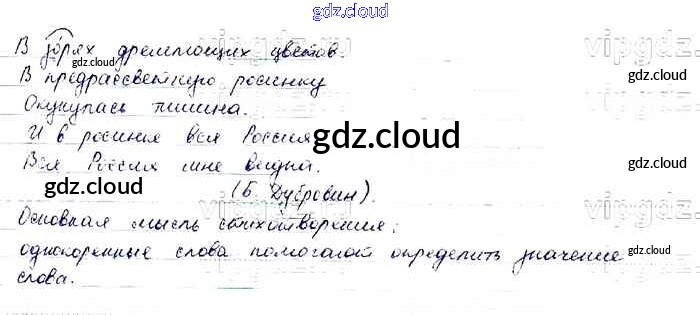 gdz.cloud
В зорях дремлющих цветов.
В предрассветную росинку
Окунулась тишина.
И в росинке вся Россия,
Вся Россия мне видна.
(Б. Дубровин).
Основная мысль стихотворения:
однокоренные слова помогают определить значение
слова.
gdz.cloud
gdz.cloud
gdz.cloud
gdz.cloud
gdz.cloud